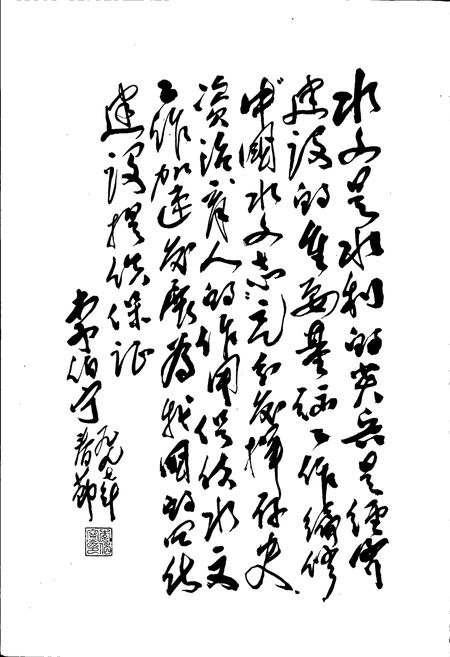 水文是水利的尖兵是经济
建设的重要基础工作编修
《中国水文志》充分发挥存史
资治育人的作用促使水文
工作加速发展为我国的四化
建设提供保证
李伯宁
春节